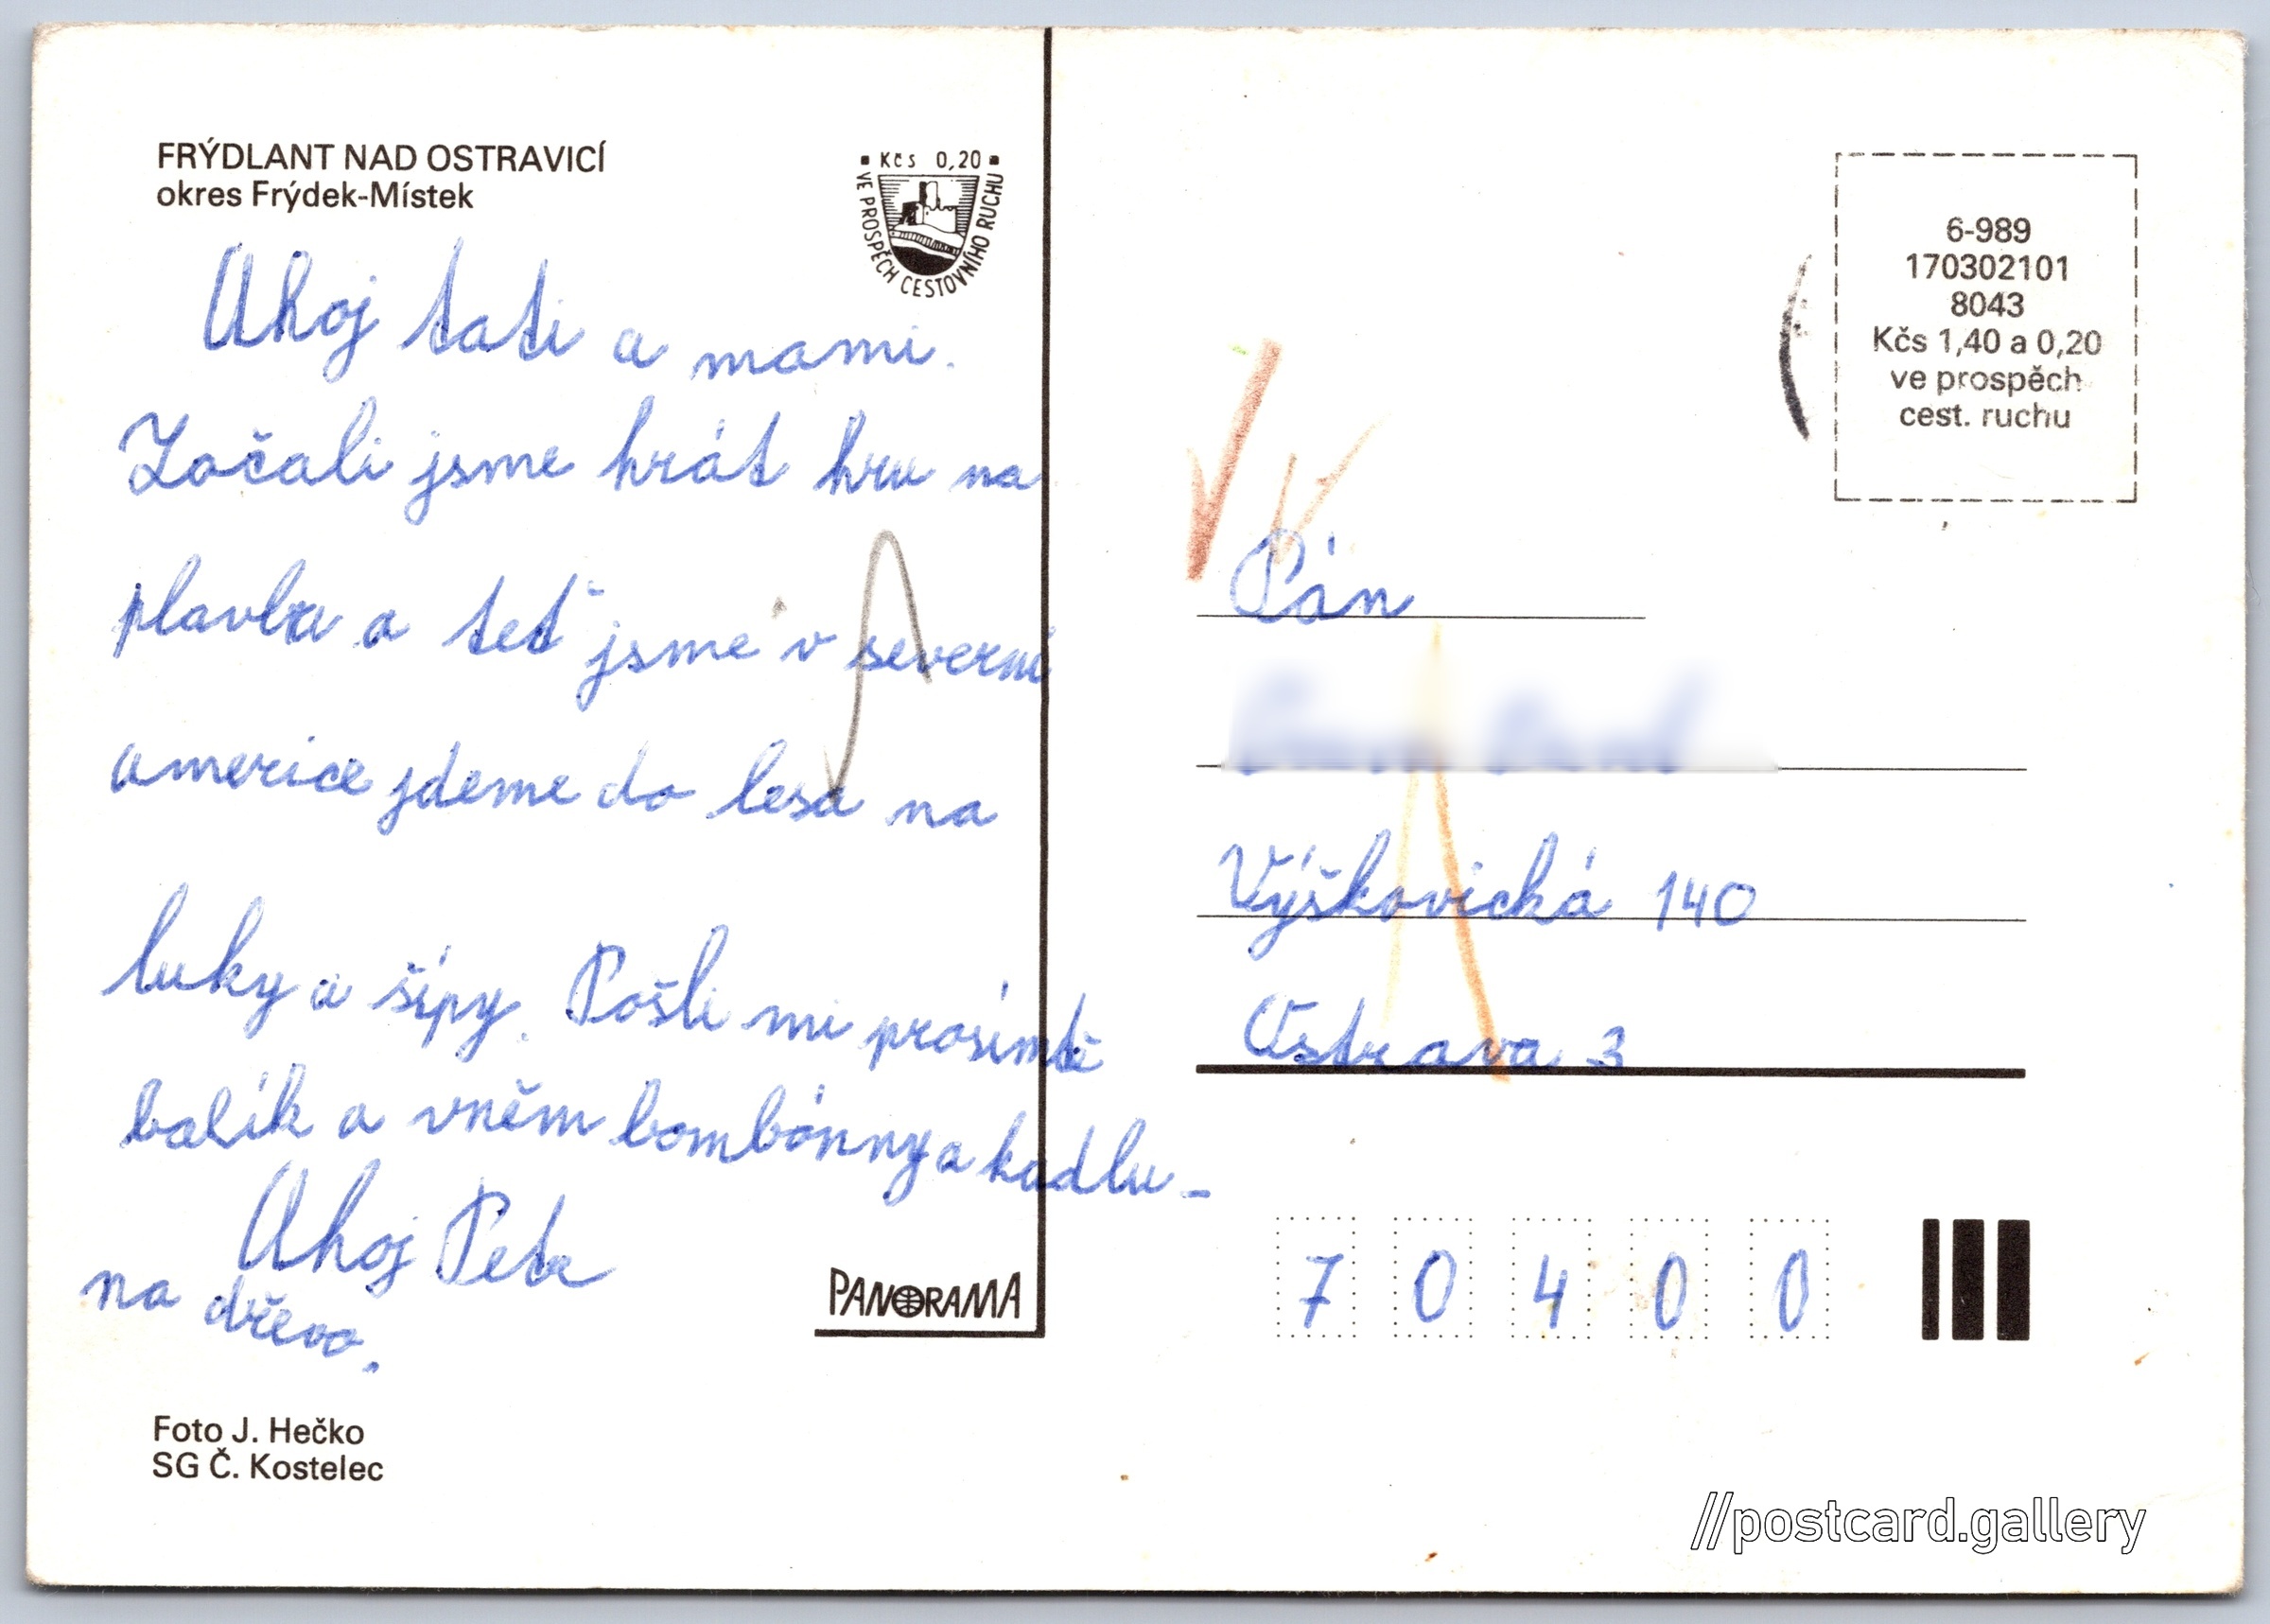 FRÝDLANT NAD OSTRAVICÍ
okres Frýdek-Místek
Kčs 0,20
VE PROSPĚCH CESTOVNÍHO RUCHU
Ahoj tati a mami.
Začali jsme hrát hru na
plavbu a teď jsme v severní
americe jdeme do lesa na
luky a šípy. Pošli mi prosímtě
balík a vněm bombónny a kudlu-
Ahoj Petr
na dřevo.
PANORAMA
Foto J. Hečko
SG Č. Kostelec
6-989
170302101
8043
Kčs 1,40 a 0,20
ve prospěch
cest. ruchu
Pán
Výškovická 140
Ostrava 3
7 0 4 0 0
//postcard.gallery